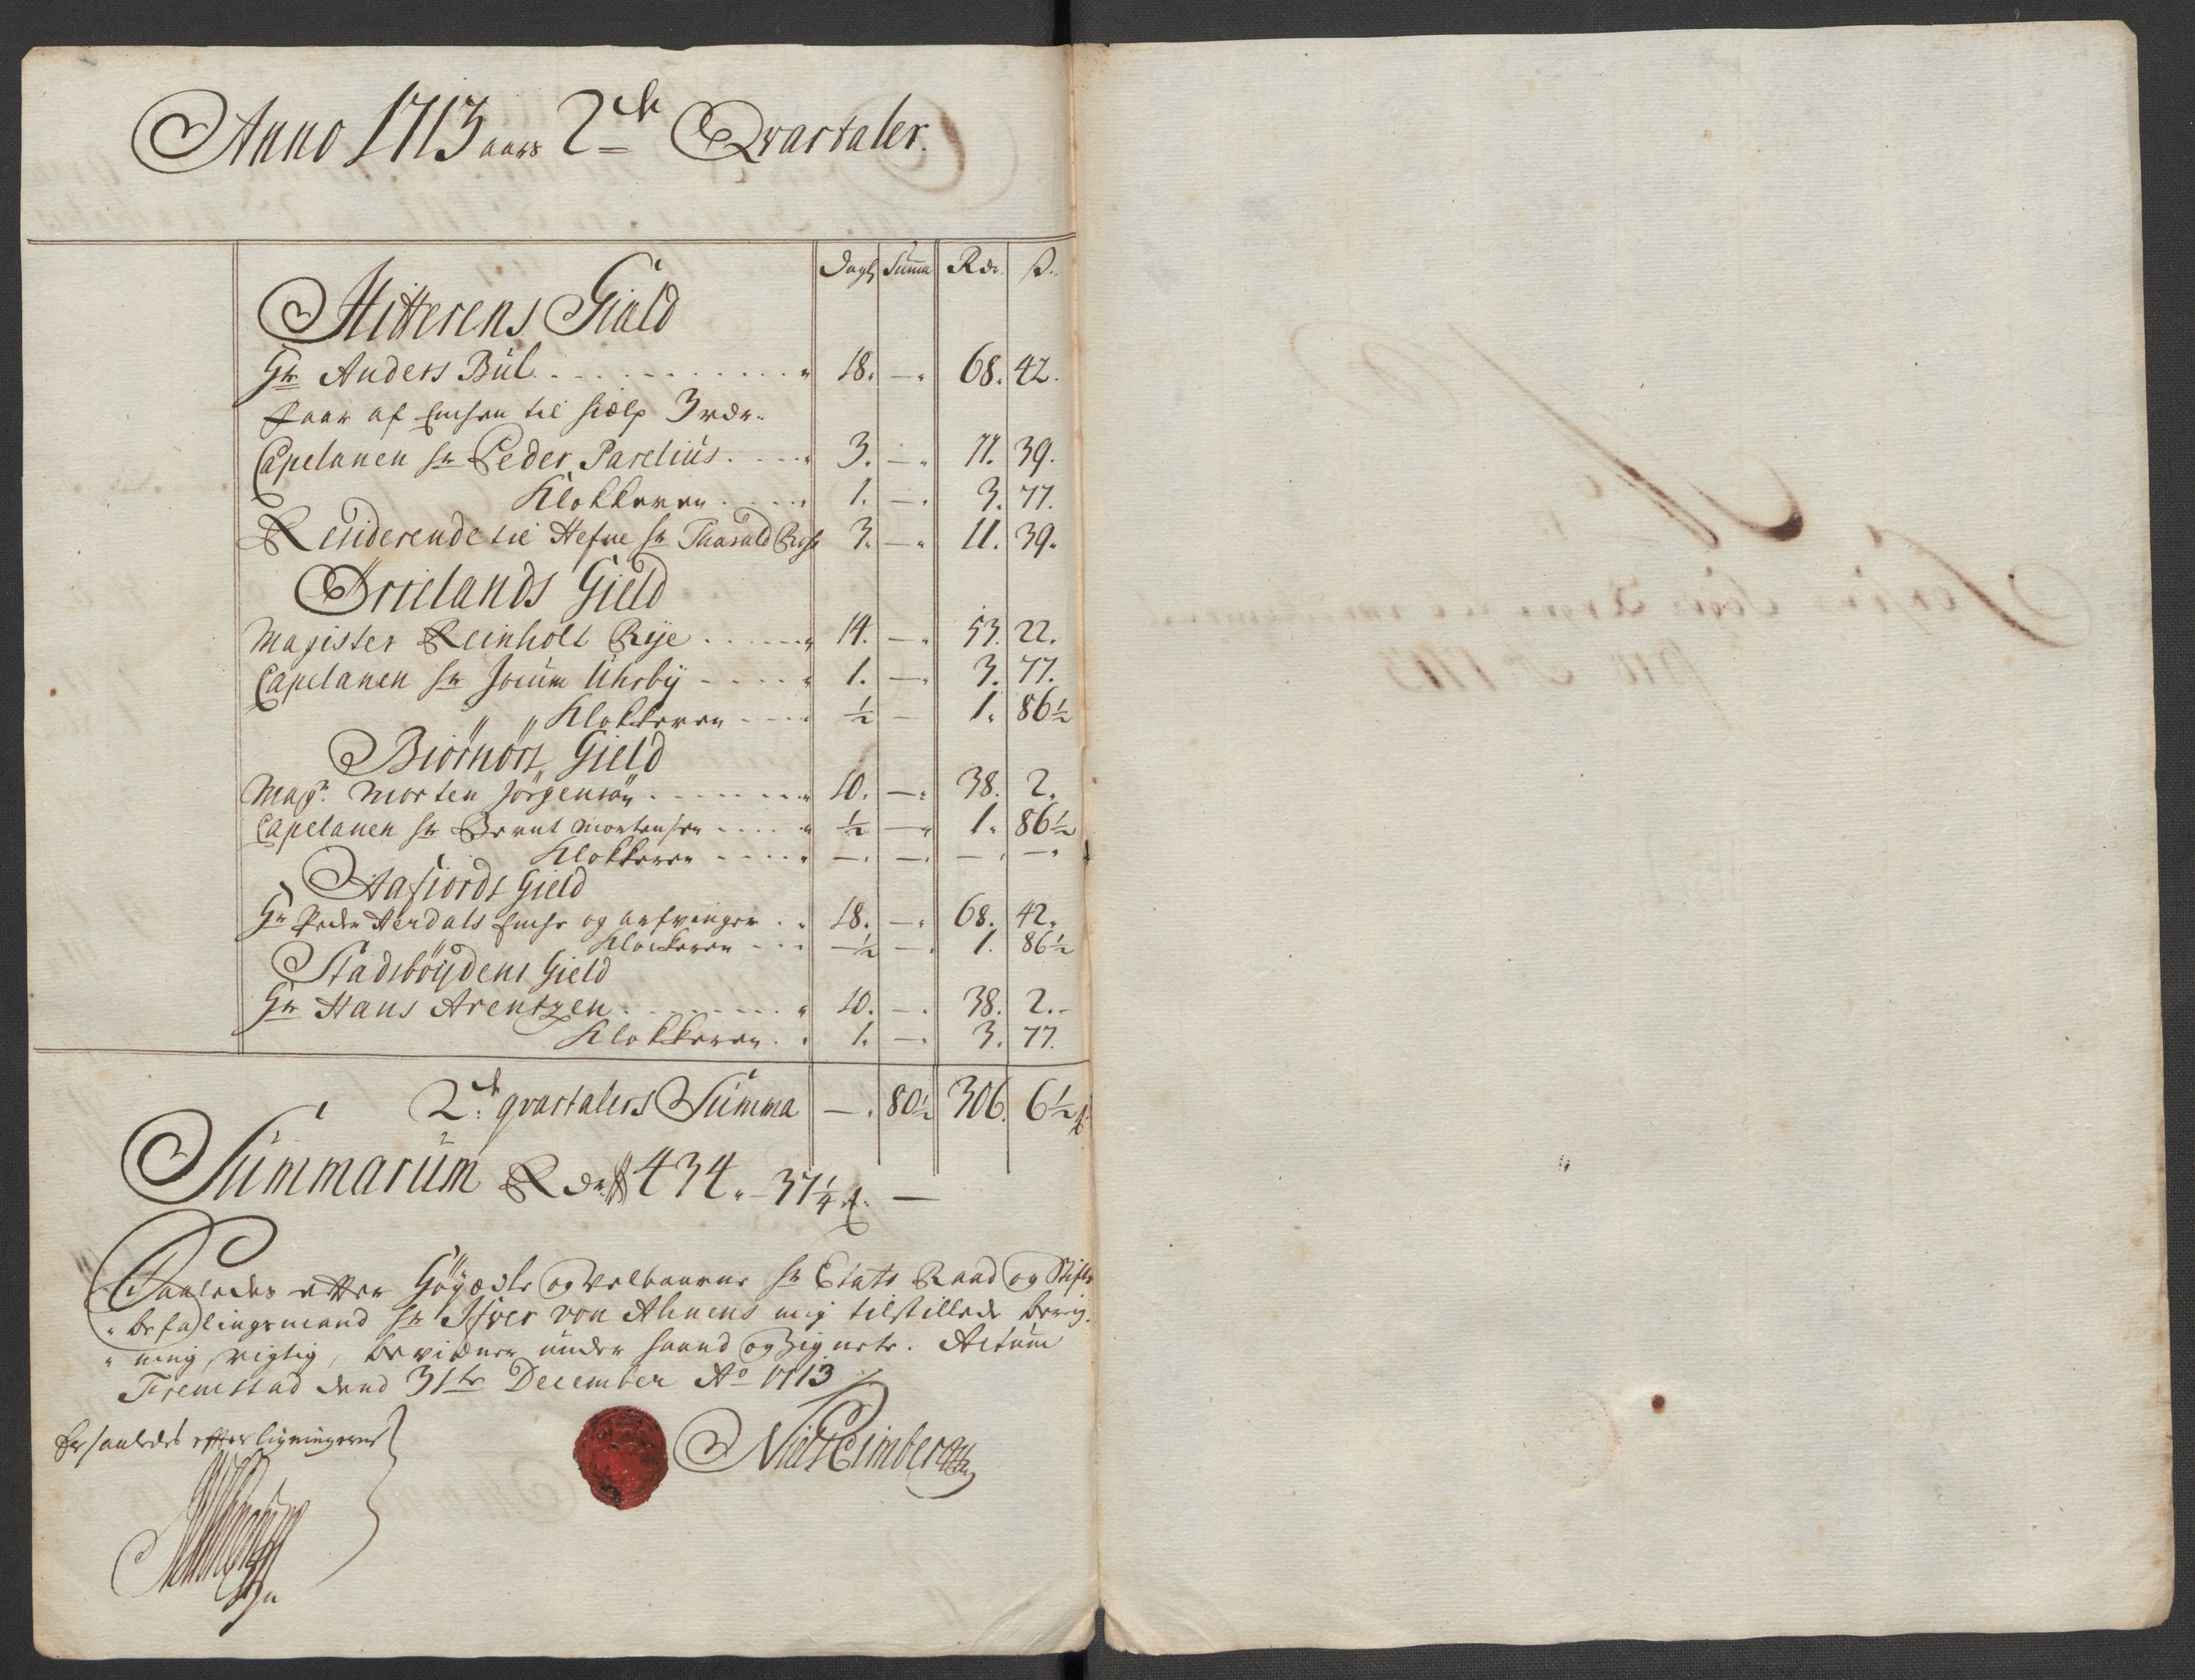 Anno 1713 aars 2de Qvartaler.
Dagl Summa Rdr. s.
Hitterens Gield
Hr Anders Bul 18. — 68. 42.
Faar af Enchen til hielp 3 rdr.
Capelanen hr Peder Parelius 3. — 11. 39.
Klokkeren 1. — 3. 77.
Residerende til Hefne hr Tharald 3. — 11. 39.
Ørrelands Gield
Magister Reinholt Rÿe 14. — 53. 22.
Capelanen hr Jocum Uhrbÿ 1. — 3. 77.
" " Klokkeren ½ — 1. 86½
Biørnørs Gield
Magr. Morten Jørgensøn 10. — 38. 2.
Capelanen hr Bernt Mortensen ½ — 1. 86½
Klokkeren — — — —
Aafiords Gield
Hr Peder Herdals Enche og arfvinger 18. — 68. 42.
Klockeren ½ — 1. 86½
Stadsbøÿdens Gield
Hr Hans Arentzen 10. — 38. 2.
Klokkeren 1. — 3. 77.
2de qvartalers Summa — 80½ 306. 6½ s
Summarum Rdr 434. - 37¼ s. —
Saaledes efter Høÿædle og Velbaarne hr Etats Raad og Stifts
befalingsmand hr Ifver von Ahnens mig tilstillede bereg
ning rigtig, bevidner under haand og Zignete. Actum
Tremstad dend 31te December Ao 1713
Er saaledes efter ligningerne
Niels Eimberg